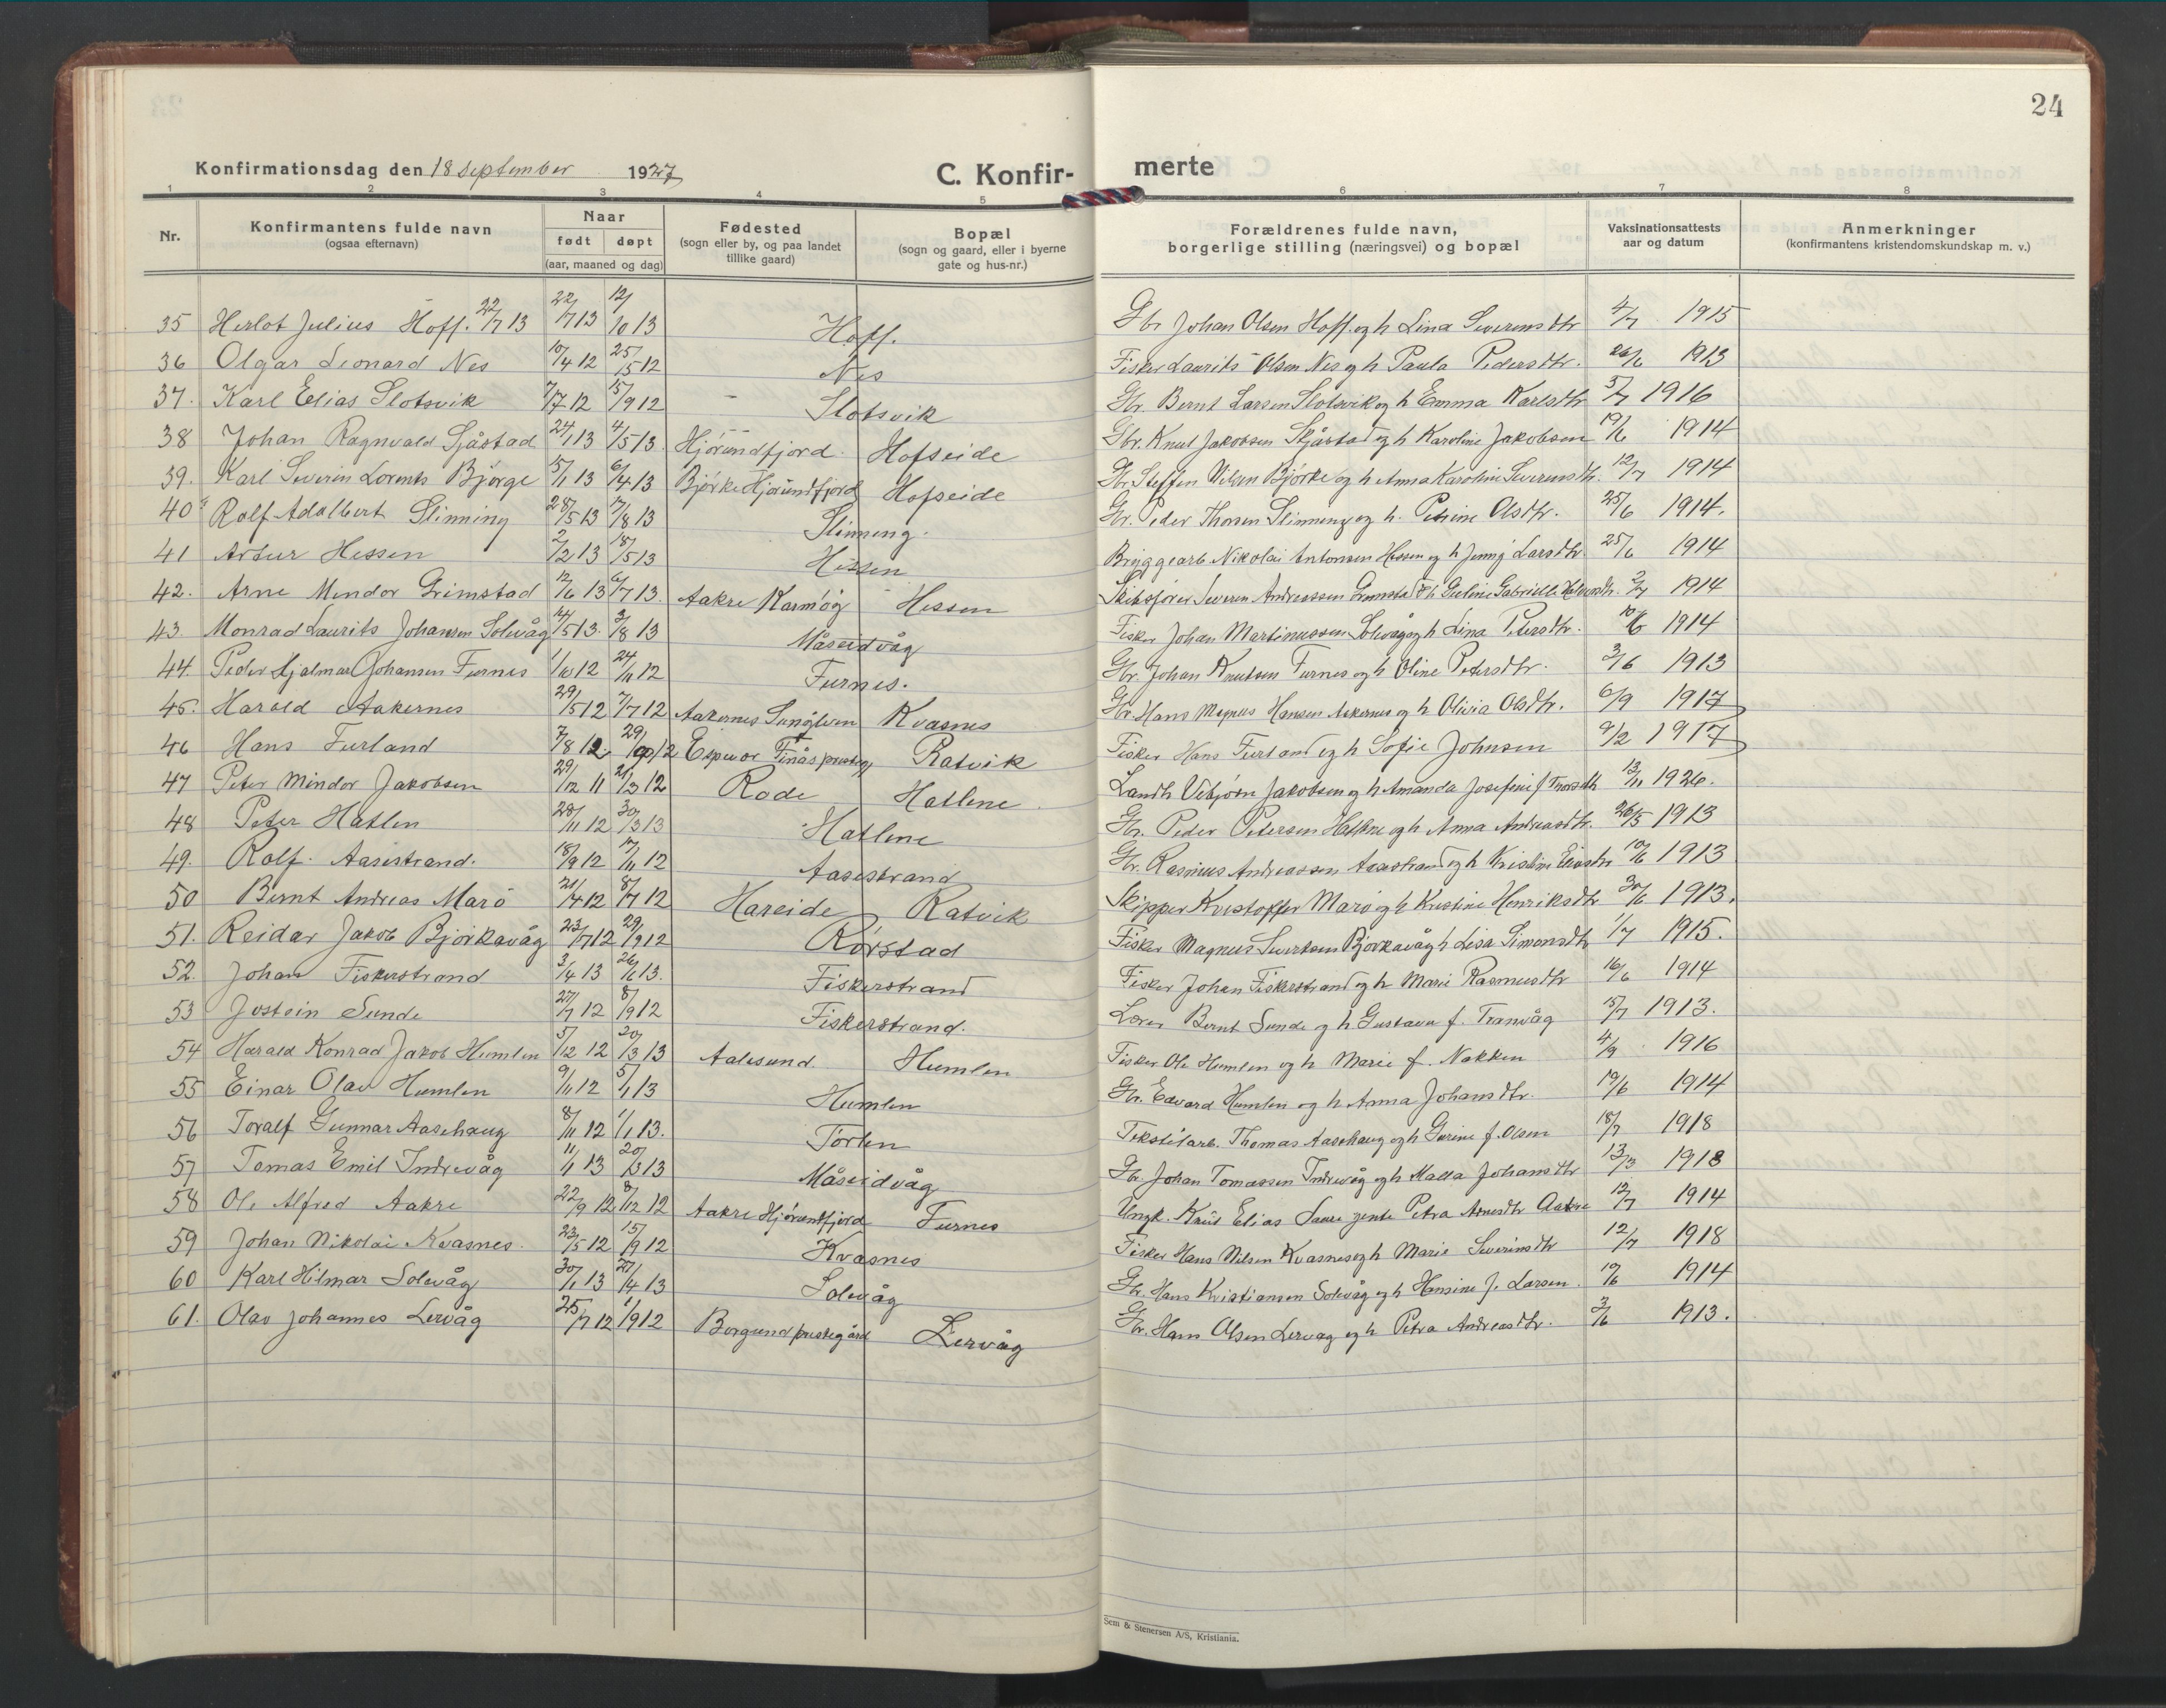 24
Konfirmationsdag den 18 september 1927 C. Konfir- merte
1 2 3 4 5 6 7 8
Nr. Konfirmantens fulde navn (ogsaa efternavn) Naar født døpt (aar, maaned og dag) Fødested (sogn eller by, og paa landet tillike gaard) Bopæl (sogn og gaard, eller i byerne gate og hus-nr.) Forældrenes fulde navn, borgerlige stilling (næringsvei) og bopæl Vaksinationsattests aar og datum Anmerkninger (konfirmantens kristendomskundskap m. v.)
35 Herlof Julius Hoff. 22/7 13 22/7 13 12/10 13 Hoff. Gbr Johan Olsen Hoff og h Lina Severinsdtr 4/7 1915
36 Olgar Leonard Nes 10/4 12 25/5 12 Nes Fisker Laurits Olsen Nes og h Paula Pedersdtr. 26/6 1913
37. Karl Elias Slotsvik 7/7 12 15/9 12 Slotsvik Gbr. Bernt Larsen Slotsvik og h Emma Karlsdtr 5/7 1916
38 Johan Ragnvald Sjåstad 24/1 13 4/5 13. Hjórundfjord. Hofseide Gbr. Knut Jakobsen Skjåstad og h Karoline Jakobsen 19/6 1914
39. Karl Severin Lorents Björge 15/1 13 6/4 13 Bjórke Hjorundfjord Hofseide Gbr. Steffen Nilsen Bjórke og h Anna Karoline Severinsdtr. 12/7 1914
40 Rolf Adalbert Slinning 28/5 13 17/8 13 Slinning. Gbr. Peder Thorsen Slinning og h. Petrine Olsdtr. 25/6 1914.
41 Artur Hessen 2/2 13 18/5 13 Hessen Bryggearb. Nikolai Antonsen Hessen og h Jenny Larsdtr. 25/6 1914
42. Arne Mendor Grimstad 12/6 13 6/7 13. Aakre Karmøy Hessen Skibsfører Severin Andreassen Grimstad og h Gueline Gabrielle 2/7 1914
43 Monrad Laurits Johansen Solevåg 14/5 13. 3/8 13 Måseidvåg Fisker Johan Martinussen Solevåg og h Lina Petersdtr. 10/6 1914
44. Peder Hjalmar Johansen Furnes 1/10 12 24/11 12 Furnes. Gbr. Johan Knutsen Furnes og h Oline Petersdtr. 3/6 1913
45. Harald Aakernes 29/5 12 7/7 12 Aakernes Sunylven Kvasnes Gbr. Hans Magnus Hansen Aakernes og h Olivia Olsdtr. 6/9 1917
46 Hans Furland 7/8 12 29/9 12 Espevær Finås prestegj Ratvik Fisker Hans Furland og h Sofie Johnsen 9/2 1917
47 Peter Mindor Jakobsen 29/12 11 21/3 12 Rode Hatlene Landh Vebjørn Jakobsen og h Amanda Josefine f Thorseth 13/11 1926.
48 Peter Hatlen 28/11 12 30/3 13 Hatlene Gbr. Peder Petersen Hatlene og h Anna Andreasdtr. 26/5 1913
49. Rolf. Aasestrand. 18/9 12 17/11 12 Aasestrand Gbr. Rasmus Andreassen Aasestrand og h Kristine 10/6 1913
50 Bernt Andreas Marö 21/4 12 8/7 12 Hareide Ratvik Skipper Kristoffer Marø og h Kristine Henriksdtr 30/6 1913.
51. Reidar Jakob Bjórkavåg 23/7 12 29/9 12 Rørstad Fisker Magnus Sivertsen Bjorkavåg h Lisa Simonsdtr 1/7 1915.
52. Johan Fiskerstrand 3/4 13 26/6 13. Fiskerstrand Fisker Johan Fiskerstrand og h Marie Rasmusdtr 16/6 1914
53 Jostein Sunde 27/7 12 8/9 12 Fiskerstrand. Lærer Bernt Sunde og h Gustava f. Tranvåg 15/7 1913.
54 Harald Konrad Jakob Humlen 5/12 12 20/3 13 Aalesund. Humlen Fisker Ole Humlen og h Marie f. Nakken 4/9 1916
55 Einar Olav Humlen 9/11 12 5/1 13 Humlen Gbr. Edvard Humlen og h Anna Johansdtr. 19/6 1914
56 Toralf Gunnar Aasehaug 8/11 12 1/1 13. Törlen Tekstilarb. Thomas Aasehaug og h Gurine f. Olsen 18/7 1918
57 Tomas Emil Indrevåg 11/1 13 20/3 13 Måseidvåg Gbr. Johan Tomassen Indrevåg og h Malla Johansdtr 13/3 1918
58 Ole Alfred Aakre 22/9 12 8/12 12 Aakre Hjórundfjord Furnes Ungk. Knut Elias Saure jente Petra Arnesdtr Aakre 12/7 1914
59 Johan Nikolai Kvasnes. 23/5 12 15/9 12 Kvasnes Fisker Hans Nilsen Kvasnes og h Marie Severinsdtr 12/7 1918
60 Karl Hilmar Solevåg 30/1 13 27/4 13 Solevåg Gbr. Hans Kristiansen Solevåg og h Hansine f. Larsen 19/6 1914
61. Olav Johannes Lervåg 25/7 12 1/9 12 Borgund prestegård Lervåg Gbr. Hans Olsen Lervåg og h Petra Andreasdtr. 3/6 1913.
Sem & Stenersen A/S, Kristiania.